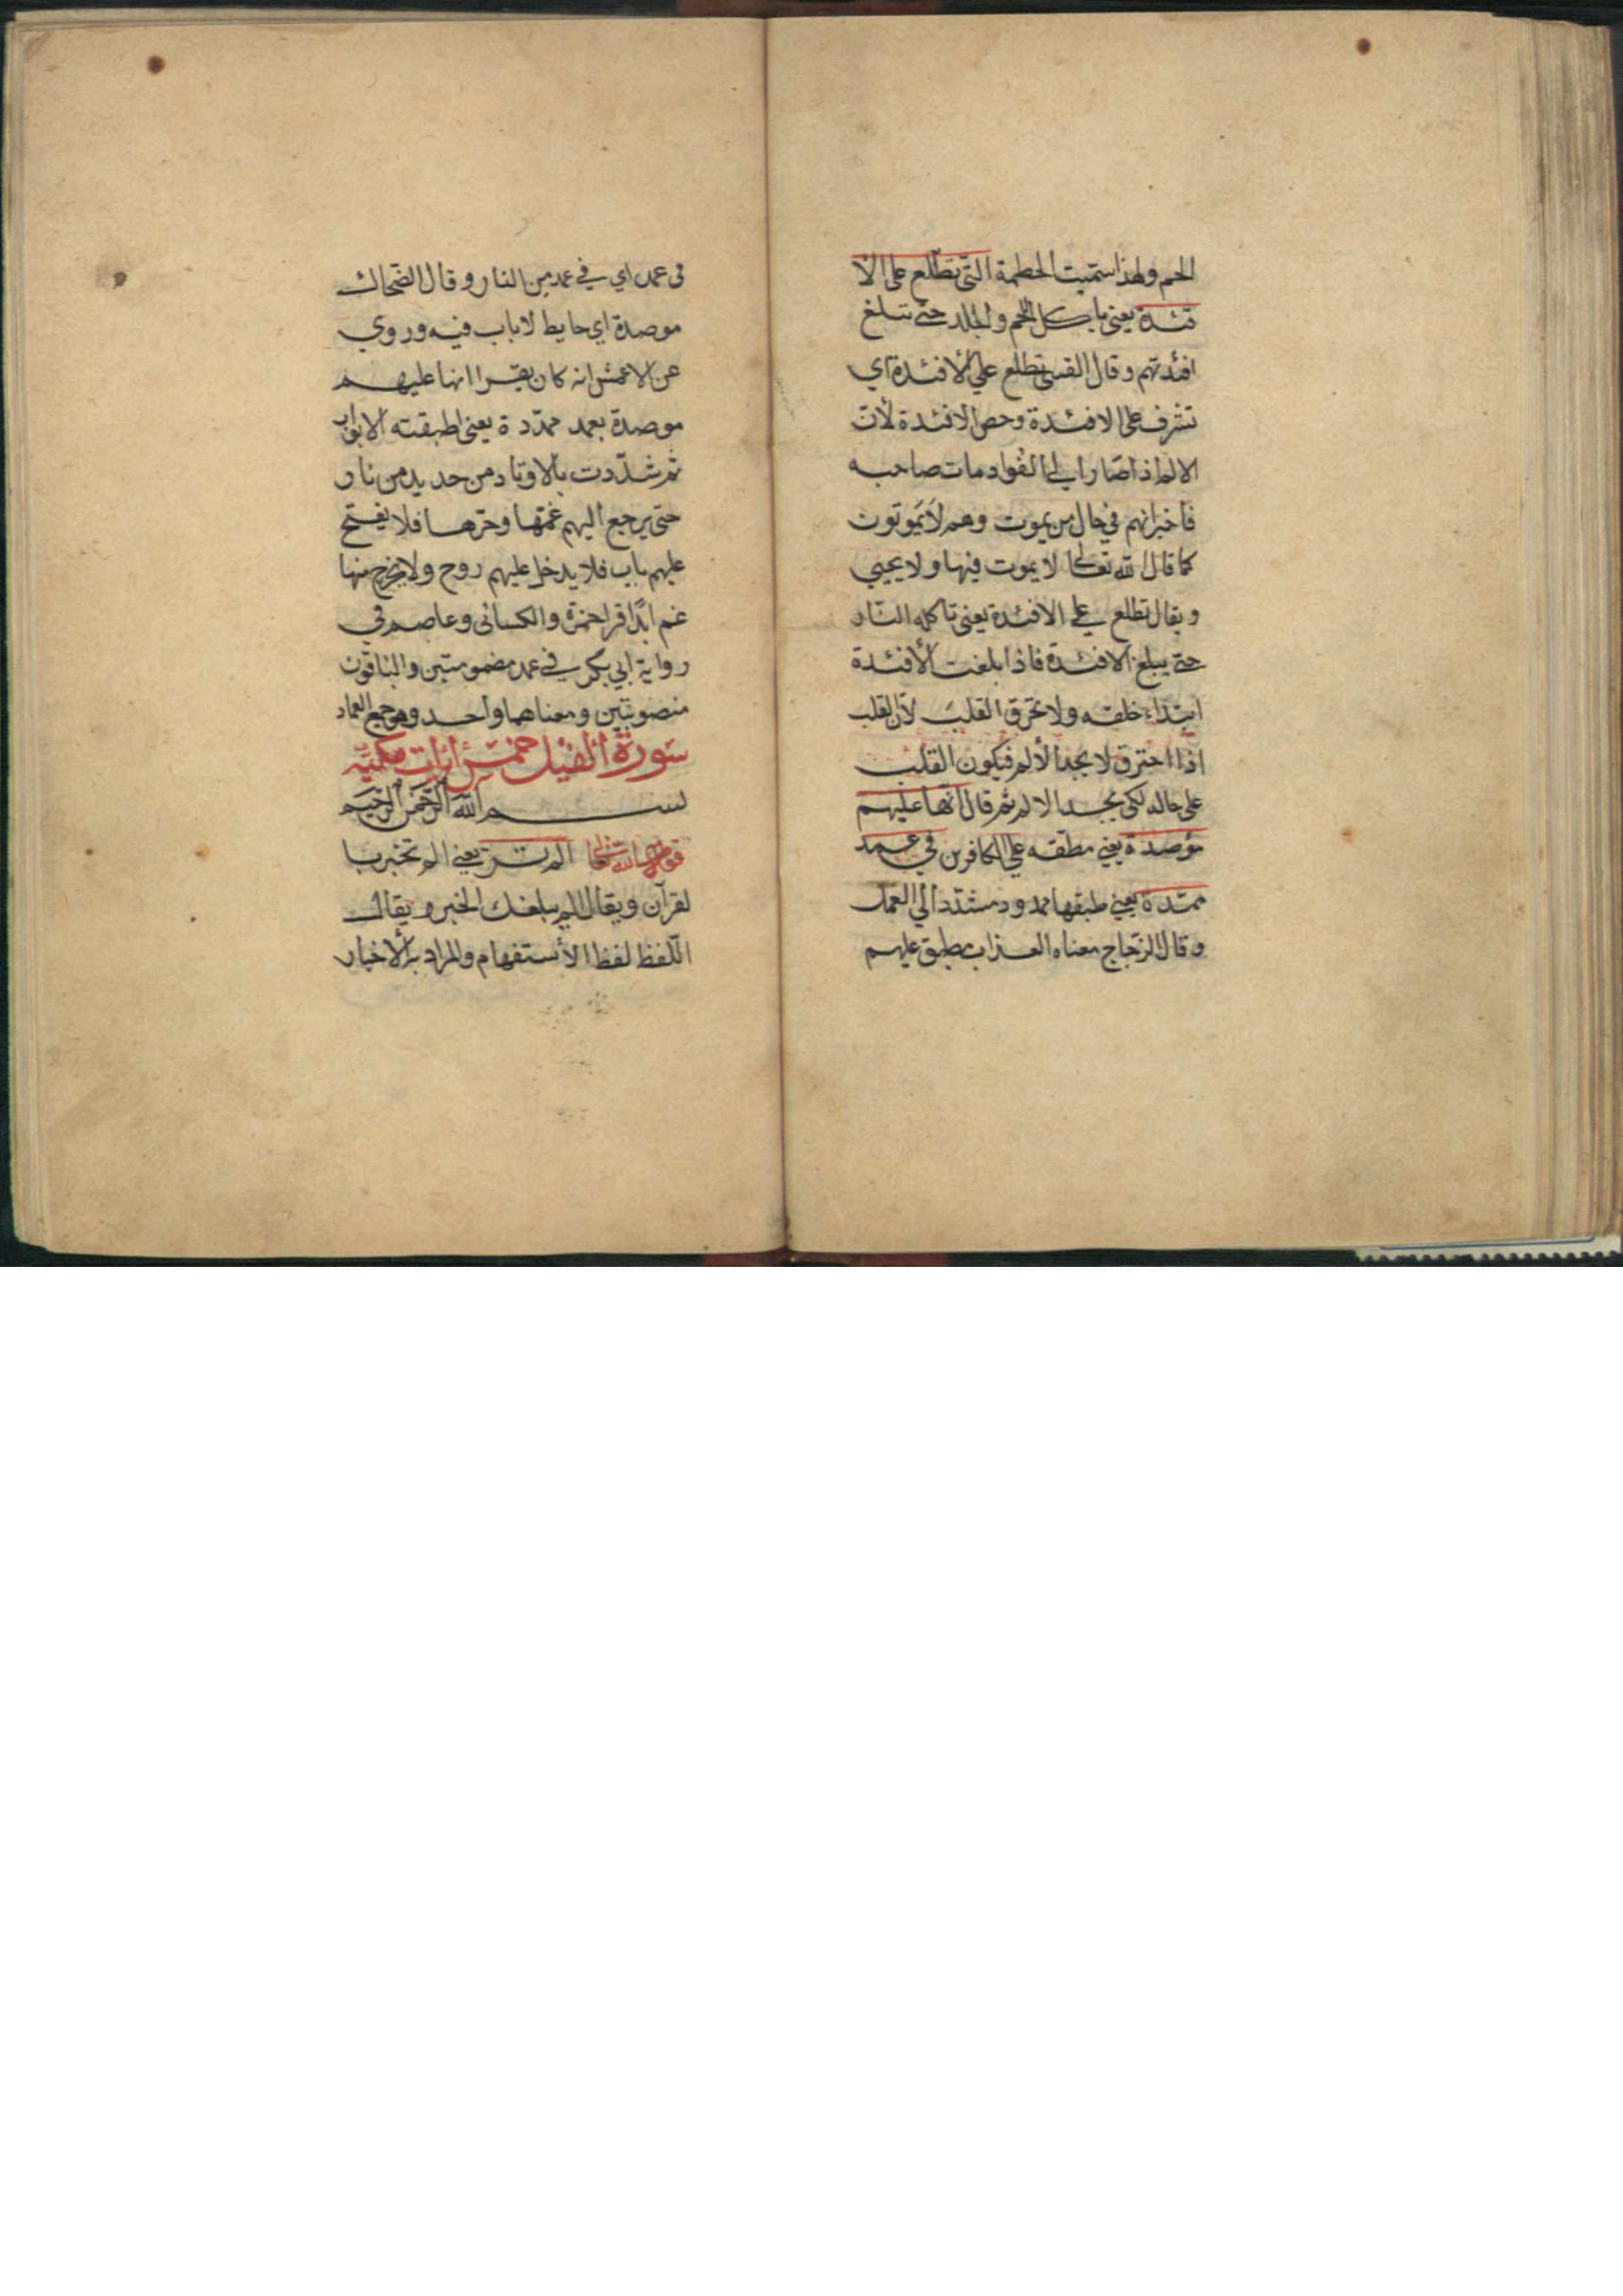 اللحم ولهذا سميت الحطمة التي تطلع على الأ
فئدة يعني يا كل اللحم والجلد حتى تبلغ
افئدتهم وقال القتبي تطلع علي الأفئدة اي
تشرف على الافئدة وخص الافئدة لأن
الالم اذا صار الي الفواد مات صاحبه
فاخبر انهم في حال من يموت وهم لا يموتون
كما قال الله تعالى لا يموت فيها ولا يحيي
ويقال تطلع علي الافئدة يعني تاكله النار
حتى يبلغ الافئدة فاذا بلغت الأفئدة
ابتداء خلقه ولا تحرق القلب لان القلب
اذا احترق لا يجد الألم فيكون القلب
على حاله لكى يجد الالم ثم قال انها عليهم
مؤصدة يعني مطبقه علي الكافرين في عمد
ممددة يعني طبقها ممدود مشدد الي العمد
وقال الزجاج معناه العذاب مطبق عليهم
في عمد اي في عمد من النار وقال الضحاك
موصدة اي حايط لا باب فيه وروي
عن الاعمش انه كان يقرا انها عليهم
موصدة بعمد ممددة يعني اطبقته الابواب
ثم شددت بالاوتاد من حديد من نار
حتى يرجع اليهم غمها وحرها فلا يفتح
عليهم باب فلا يدخل عليهم روح ولا يخرج منها
غم ابدًا قرا حمزة والكسائى وعاصم في
رواية ابي بكر في عمد مضمومتين والباقون
منصوبتين ومعناهما واحد وهو جمع العماد
سورة الفيل خمس ايات مكية
بسم الله الرحمن الرحيم
قوله تعالى الم تر يعني الم تخبر با
لقرآن ويقال الم يبلغك الخبر ويقال
اللفظ لفظ الأستفهام والمراد به الأخبار